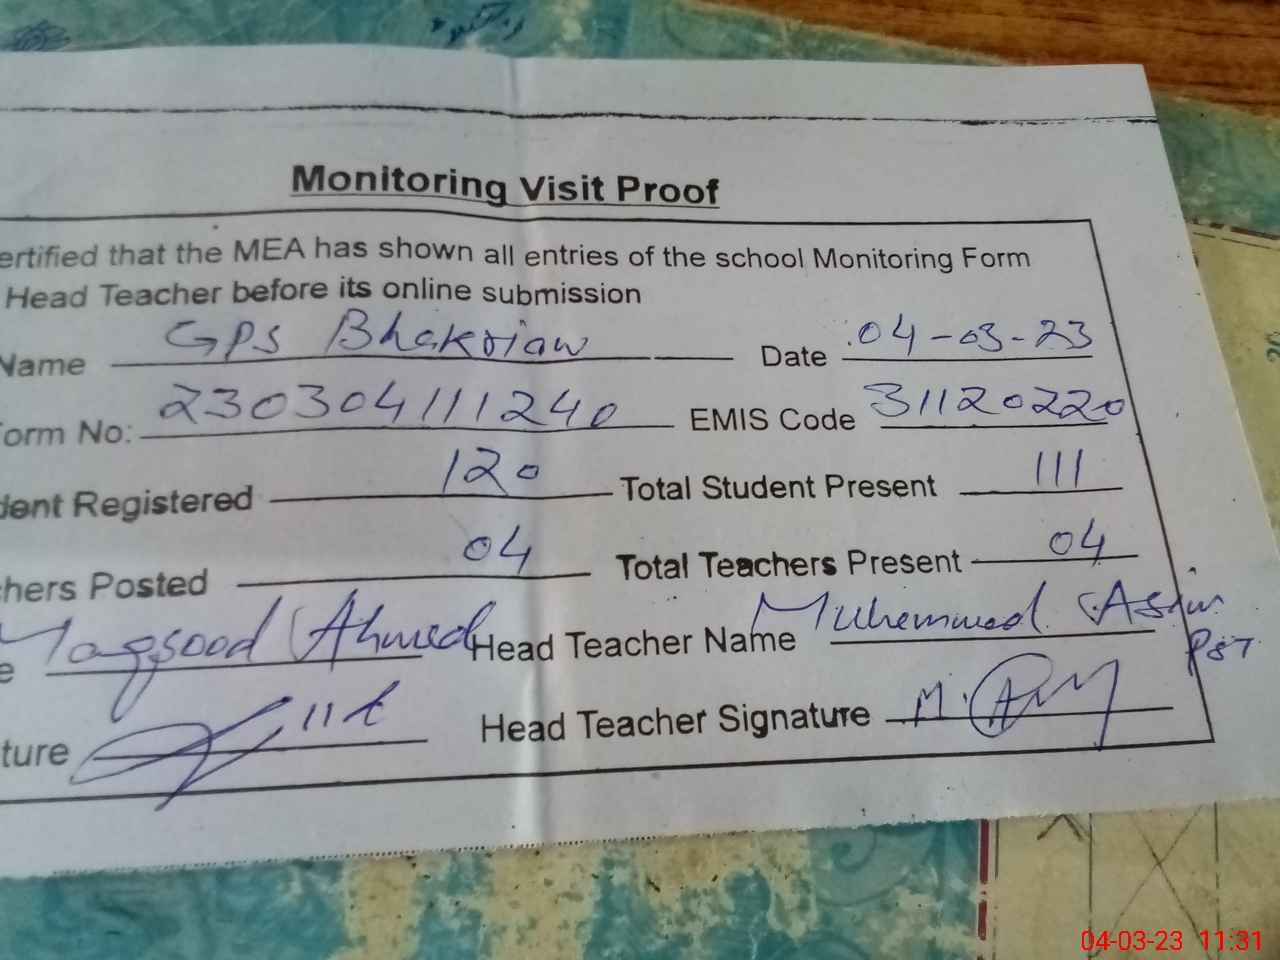 Monitoring Visit Proof
ertified that the MEA has shown all entries of the school Monitoring Form
Head Teacher before its online submission
Name GPS Bhakrian Date 04-03-23
orm No: 230304111240 EMIS Code 31120220
dent Registered 120 Total Student Present 111
chers Posted 04 Total Teachers Present 04
e Maqsood Ahmed Head Teacher Name Muhemmed
PST
ture Head Teacher Signature
04-03-23 11:31